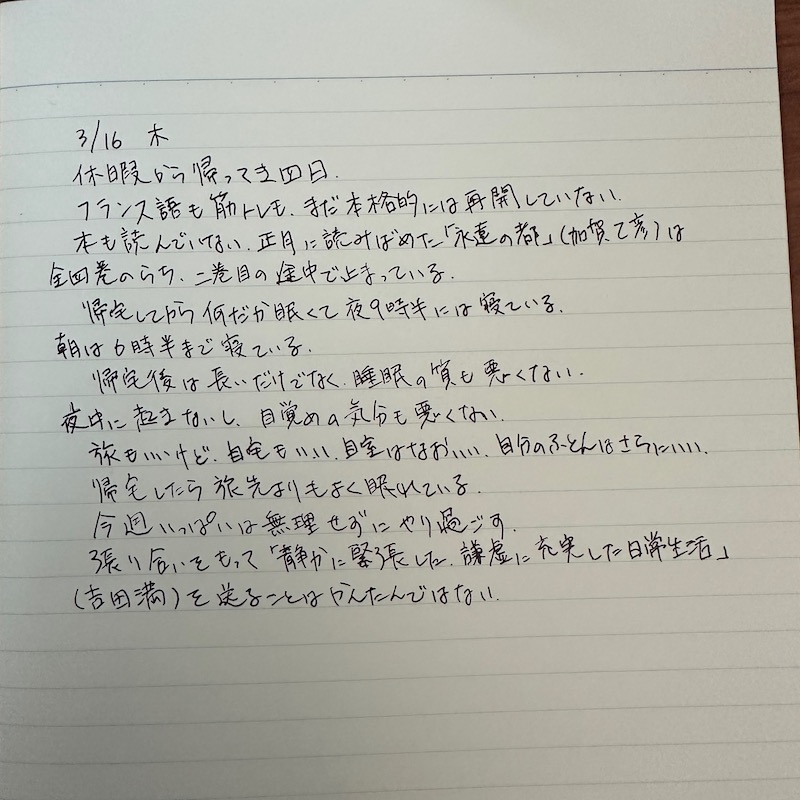 3/16 木
休暇から帰ってき四日.
フランス語も筋トレも、まだ本格的には再開していない.
本も読んでいない. 正月に読みはじめた「永遠の都」(加賀乙彦)は
全四巻のうち、二巻目の途中で止まっている.
帰宅してから何だか眠くて夜9時半には寝ている.
朝は6時半まで寝ている.
帰宅後は長いだけでなく、睡眠の質も悪くない.
夜中に起きないし、目覚めの気分も悪くない.
旅もいいけど、自宅もいい. 自室はなおいい. 自分のふとんはさらにいい.
帰宅したら旅先よりもよく眠れている.
今週いっぱいは無理せずにやり過ごす.
張り合いをもって「静かに緊張した、謙虚に充実した日常生活」
(吉田満)を送ることはかんたんではない.